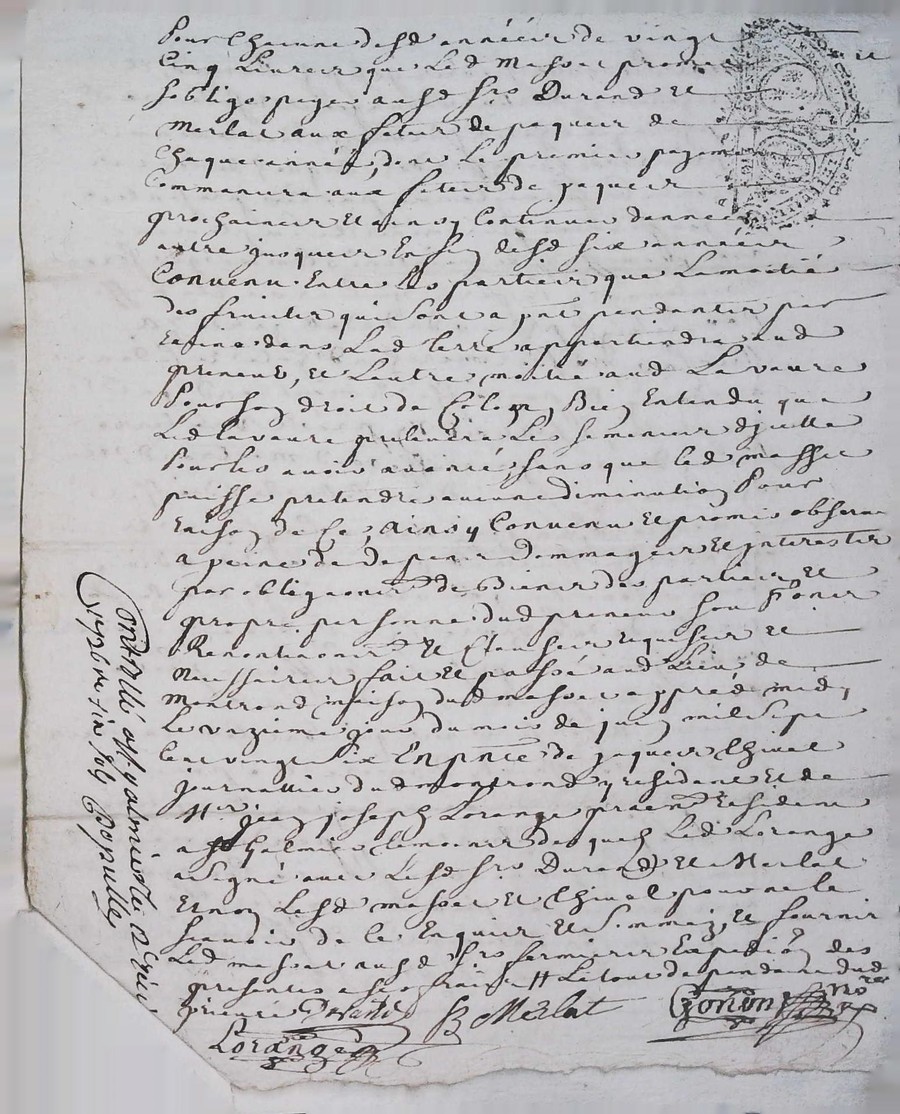 Pour Chacune desd années de vingt
Cinq Livres que Led Masset promet et
sobligo payer ausd Srs Durand et
Merlat aux fetes de paques de
Chaque année, dont Le premier payem
Commancera aux fetes de paques
prochaines Et ainsy Continuer dannée
autre jusques En fin desd six années
Convenu Entre les parties que La moitié
des fruits qui sont a pnt pendants par
racine dans Lad terre appartiendra aud
preneur, et Lautre moitié aud Lavaure
Pour son droit de Colon, Bien Entendu que
Led Lavaure prelevera Les semences djcelle
Pour les avoir avancé, sans que led masset
puisse pretendre aucune diminution Pour
raison de Ce, Ainsy Convenu Et promis observer
a peine de depens dommages Et jnterests
par obligaons de Biens des parties Et
propre personne dud preneur sou
Renontions Et Clauses requises et
Necessaires fait Et passé aud Lieu de
Montrond maison dud masset appres midy
Le unzieme jour du mois de juin mil sept
Cent vingt six En pnce de jaques Chivat
journallier dud montrond y residant Et de
Mr jean joseph Lorange praen Residant
a St Galmier temoins desquels Led Lorange
a Signé avec Lesd Srs Durand Et Merlat
Et non Lesd masset Et Chivat pour ne le
scavoir de ce Enquis Et Sommez, Et fournir
Led masset ausd Srs fermiers Expedion des
presentes a ses frais # Le tout dependant dud
prieuré Durand Merlat
Lorange
Controllé a St galmier le